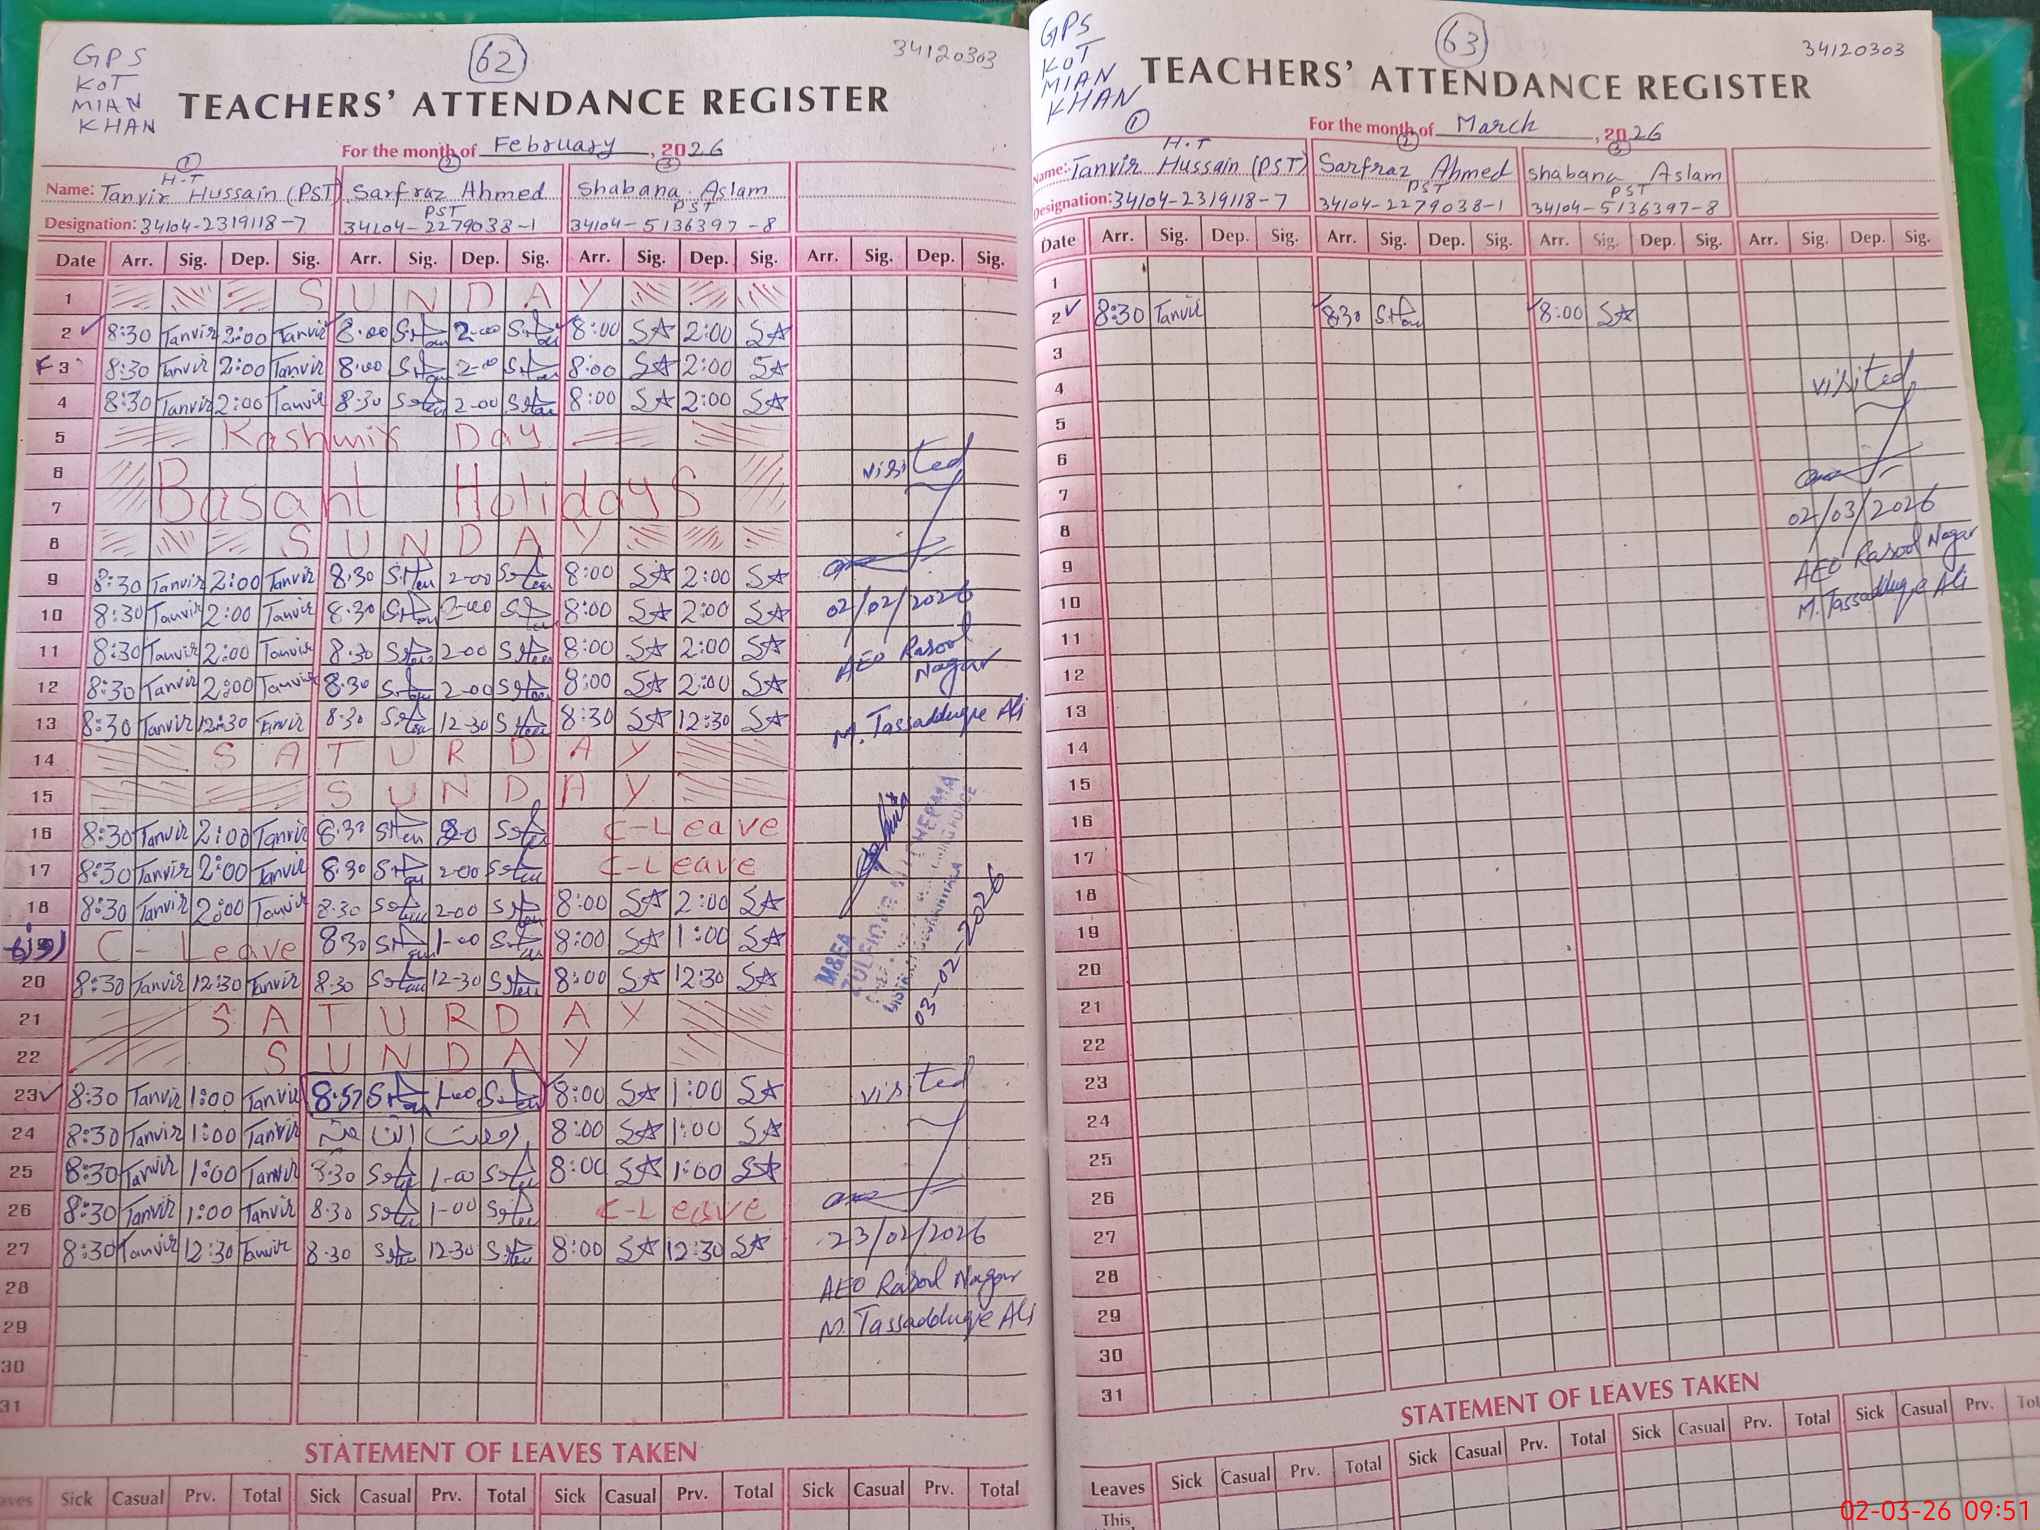 GPS
KOT
MIAN
KHAN
62
34120303
TEACHERS' ATTENDANCE REGISTER
For the month of February, 2026
1 2 3
H.T
Name: Tanvir Hussain (PST) Sarfraz Ahmed Shabana Aslam
PST PST
Designation: 34104-2319118-7 34104-2279038-1 34104-5136397-8
Date Arr. Sig. Dep. Sig. Arr. Sig. Dep. Sig. Arr. Sig. Dep. Sig. Arr. Sig. Dep. Sig.
1 SUNDAY
2 8:30 Tanvir 2:00 Tanvir 8.00 2-00 8:00 SA 2:00 SA
3 8:30 Tanvir 2:00 Tanvir 8.00 2-00 8:00 SA 2:00 SA
4 8:30 Tanvir 2:00 Tanvir 8.30 2-00 8:00 SA 2:00 SA
5 Kashmir Day
6
Basant Holidays
7
8 SUNDAY
9 8:30 Tanvir 2:00 Tanvir 8.30 2-00 8:00 SA 2:00 SA
10 8:30 Tanvir 2:00 Tanvir 8.30 2-00 8:00 SA 2:00 SA
11 8:30 Tanvir 2:00 Tanvir 8.30 2-00 8:00 SA 2:00 SA
12 8:30 Tanvir 2:00 Tanvir 8.30 2-00 8:00 SA 2:00 SA
13 8:30 Tanvir 12:30 Tanvir 8.30 12-30 8:30 SA 12:30 SA
14 SATURDAY
15 SUNDAY
16 8:30 Tanvir 2:00 Tanvir 8.30 C-Leave
17 8:30 Tanvir 2:00 Tanvir 8.30 2-00 C-Leave
18 8:30 Tanvir 2:00 Tanvir 8.30 2-00 8:00 SA 2:00 SA
19 C-Leave 8.30 1-00 8:00 SA 1:00 SA
20 8:30 Tanvir 12:30 Tanvir 8.30 12-30 8:00 SA 12:30 SA
21 SATURDAY
22 SUNDAY
23 8:30 Tanvir 1:00 Tanvir 8.57 1-00 8:00 SA 1:00 SA
24 8:30 Tanvir 1:00 Tanvir 8:00 SA 1:00 SA
25 8:30 Tanvir 1:00 Tanvir 8.30 1-00 8:00 SA 1:00 SA
26 8:30 Tanvir 1:00 Tanvir 8.30 1-00 C-Leave
27 8:30 Tanvir 12:30 Tanvir 8.30 12-30 8:00 SA 12:30 SA
28
29
30
31
visited
02/02/2026
AEO Rasool
Nagar
M. Tassadduqe Ali
M&EA
03-02-2026
visited
23/02/2026
AEO Rasool Nagar
M. Tassadduqe Ali
STATEMENT OF LEAVES TAKEN
Sick Casual Prv. Total Sick Casual Prv. Total Sick Casual Prv. Total Sick Casual Prv. Total
GPS
KOT
MIAN
KHAN
63
34120303
TEACHERS' ATTENDANCE REGISTER
For the month of March, 2026
1 2 3
H.T
Name: Tanvir Hussain (PST) Sarfraz Ahmed Shabana Aslam
PST PST
Designation: 34104-2319118-7 34104-2279038-1 34104-5136397-8
Date Arr. Sig. Dep. Sig. Arr. Sig. Dep. Sig. Arr. Sig. Dep. Sig. Arr. Sig. Dep. Sig.
1
2 8:30 Tanvir 8.30 8:00 SA
3
4
5
6
7
8
9
10
11
12
13
14
15
16
17
18
19
20
21
22
23
24
25
26
27
28
29
30
31
visited
02/03/2026
AEO Rasool Nagar
M. Tassadduqe Ali
STATEMENT OF LEAVES TAKEN
Leaves Sick Casual Prv. Total Sick Casual Prv. Total Sick Casual Prv. Total Sick Casual Prv.
This
02-03-26 09:51